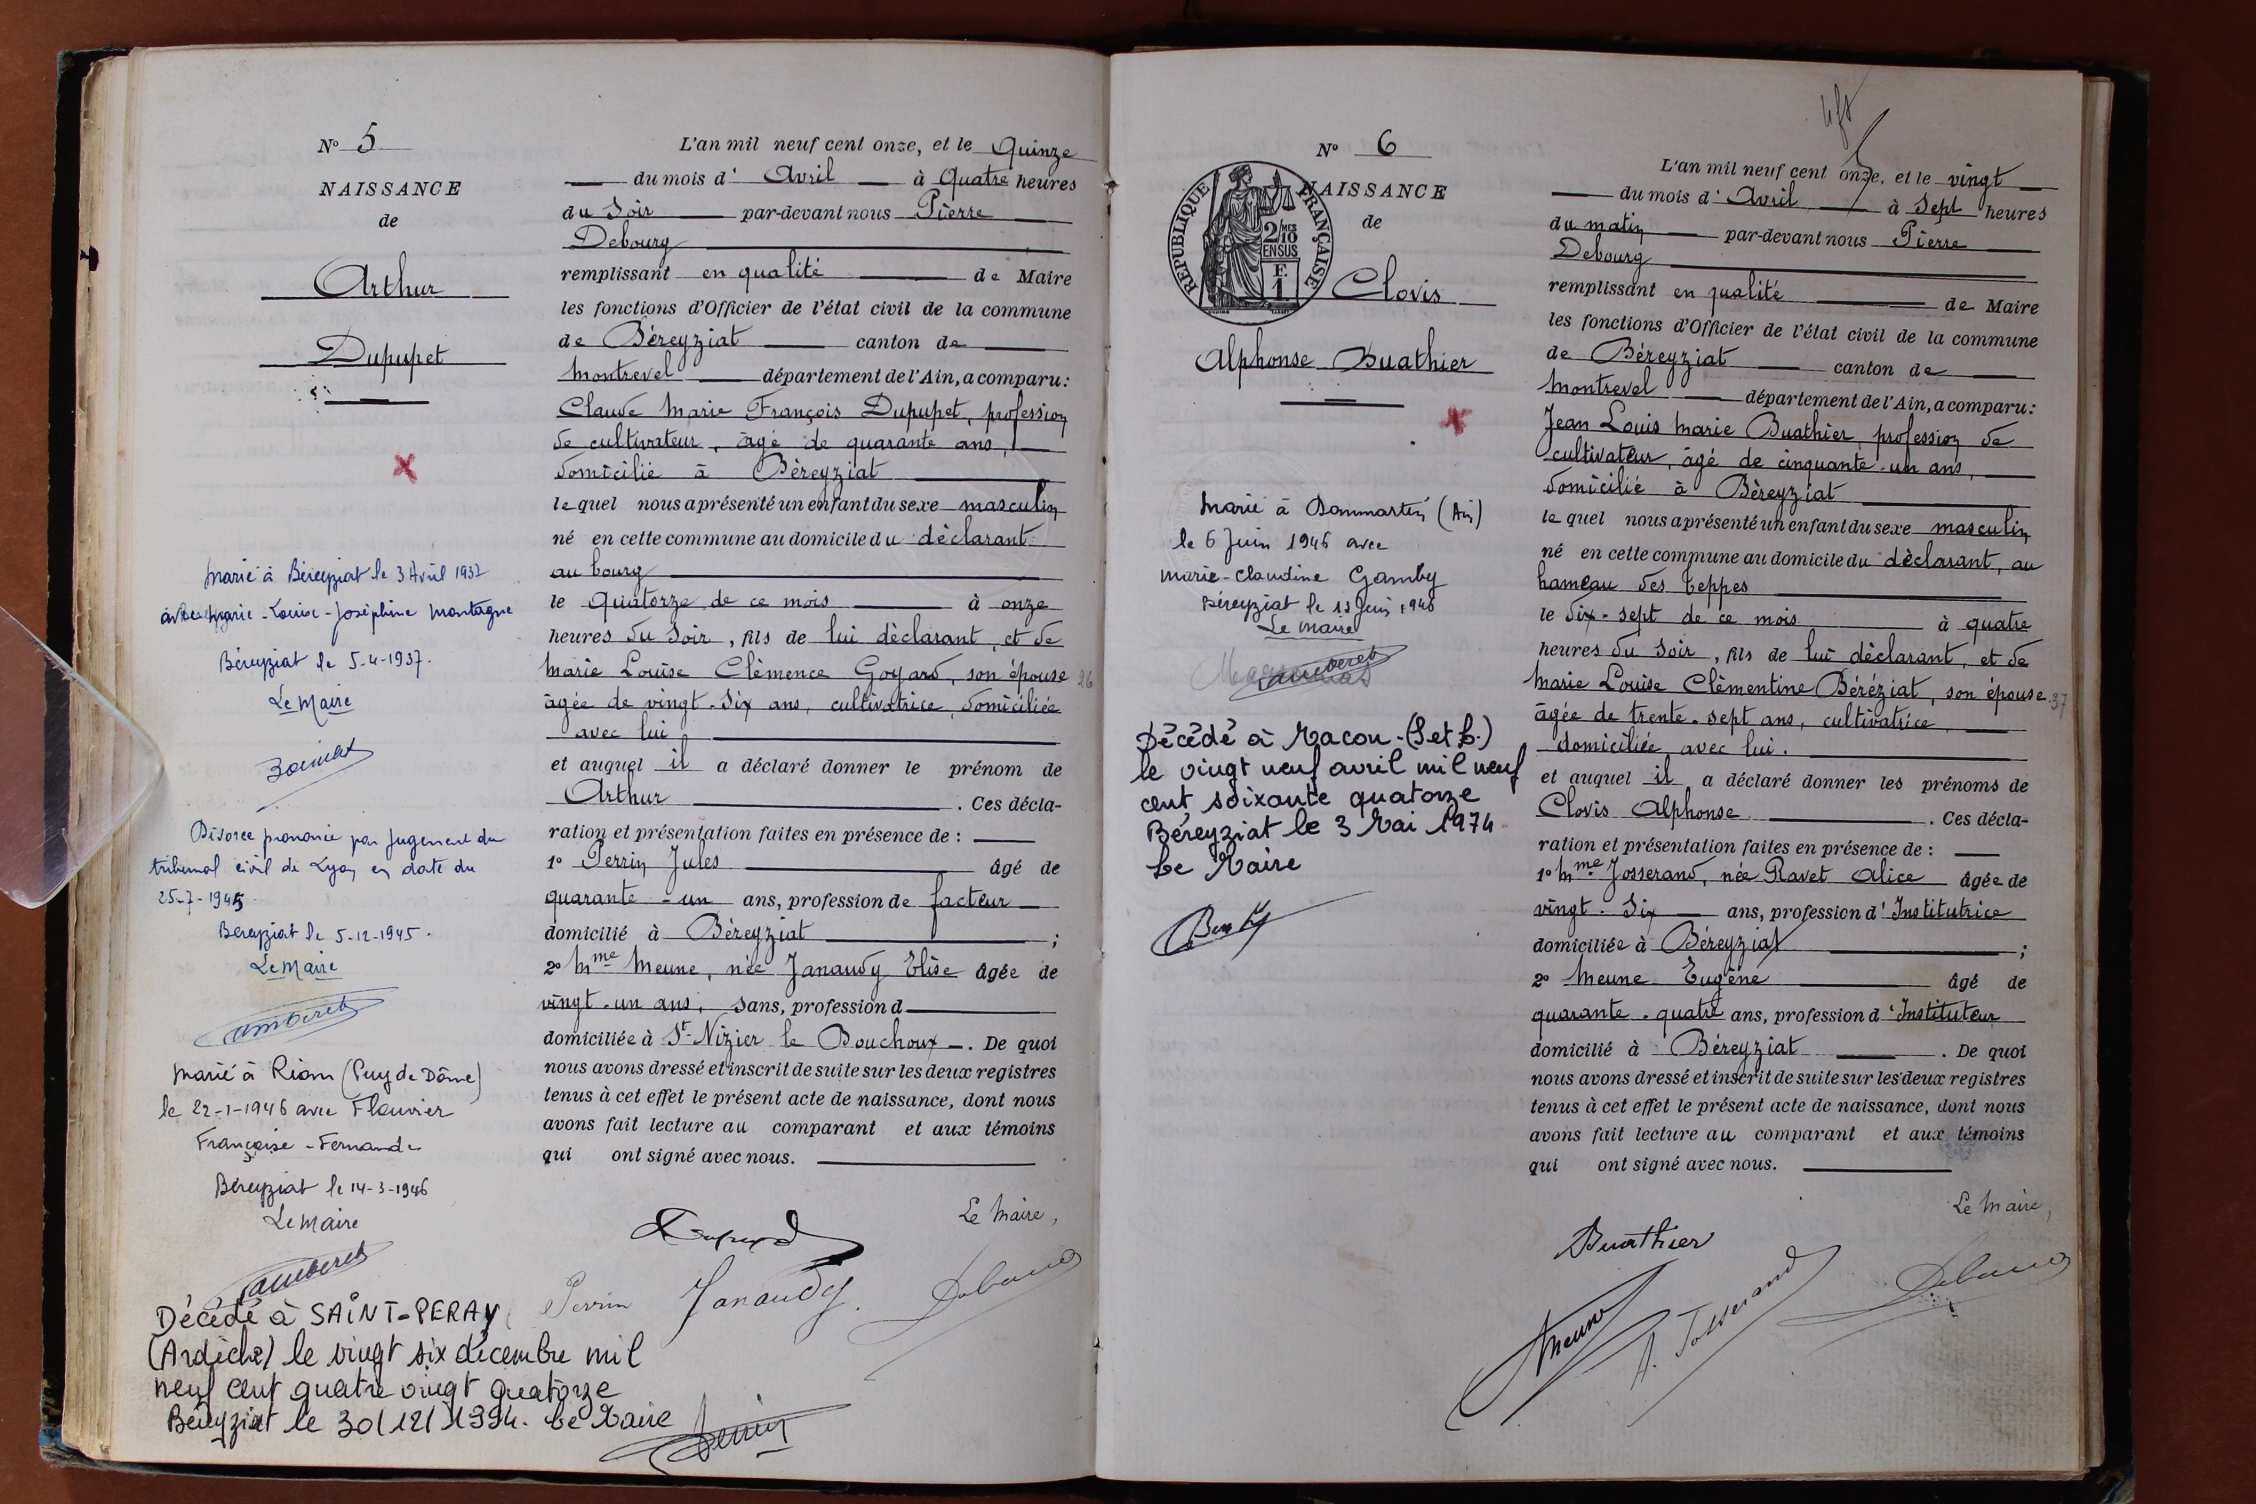 N° 5
NAISSANCE
de
Arthur
Dupupet
marié à Béreyziat le 3 Avril 1937
avec Marie-Louise-Joséphine Montagne
Béreyziat le 5-4-1937.
Le Maire
Divorce prononcé par Jugement du
tribunal civil de Lyon en date du
25-7-1945
Béreyziat le 5-12-1945.
Le Maire
marié à Riom (Puy de Dôme)
le 22-1-1946 avec Flouvier
Françoise-Fernande
Béreyziat le 14-3-1946
Le Maire
Décédé à SAINT-PERAY
(Ardèche) le vingt six décembre mil
neuf cent quatre vingt quatorze
Béreyziat le 30/12/1994. Le Maire
L'an mil neuf cent onze, et le Quinze
du mois d' Avril à Quatre heures
du Soir par-devant nous Pierre
Debourg
remplissant en qualité de Maire
les fonctions d'Officier de l'état civil de la commune
de Béreyziat canton de
Montrevel département de l'Ain, a comparu:
Claude Marie François Dupupet, profession
de cultivateur, âgé de quarante ans,
domicilié à Béreyziat
lequel nous a présenté un enfant du sexe masculin
né en cette commune au domicile du déclarant
au bourg
le Quatorze de ce mois à onze
heures du Soir, fils de lui déclarant, et de
Marie Louise Clémence Goyard, son épouse 26
âgée de vingt-six ans, cultivatrice, domiciliée
avec lui
et auquel il a déclaré donner le prénom de
Arthur . Ces décla-
ration et présentation faites en présence de :
1° Perrin Jules âgé de
quarante-un ans, profession de facteur
domicilié à Béreyziat ;
2° Mme Meune, née Janaudy Elise âgée de
vingt-un ans, sans, profession d
domiciliée à St-Nizier le Bouchoux. De quoi
nous avons dressé et inscrit de suite sur les deux registres
tenus à cet effet le présent acte de naissance, dont nous
avons fait lecture au comparant et aux témoins
qui ont signé avec nous.
Le Maire,
Perrin Janaudy. Debourg
N° 6
NAISSANCE
de
RÉPUBLIQUE FRANÇAISE
2/10 MES
EN SUS
F.
1
Clovis
Alphonse Buathier
Marié à Dommartin (Ain)
le 6 Juin 1946 avec
Marie-Claudine Gamby
Béreyziat le 13 Juin 1946
Le Maire
Décédé à Macon-(S et L.)
le vingt neuf avril mil neuf
cent soixante quatorze
Béreyziat le 3 Mai 1974
Le Maire
L'an mil neuf cent onze, et le vingt
du mois d' Avril à Sept heures
du matin par-devant nous Pierre
Debourg
remplissant en qualité de Maire
les fonctions d'Officier de l'état civil de la commune
de Béreyziat canton de
Montrevel département de l'Ain, a comparu:
Jean Louis Marie Buathier, profession de
cultivateur, âgé de cinquante-un ans,
domicilié à Béreyziat
lequel nous a présenté un enfant du sexe masculin
né en cette commune au domicile du déclarant, au
hameau des Teppes
le dix-sept de ce mois à quatre
heures du Soir, fils de lui déclarant, et de
Marie Louise Clémentine Béréziat, son épouse 37
âgée de trente-sept ans, cultivatrice,
domiciliée avec lui.
et auquel il a déclaré donner les prénoms de
Clovis Alphonse . Ces décla-
ration et présentation faites en présence de :
1° Mme Josserand, née Ravet Alice âgée de
vingt-six ans, profession d' Institutrice
domiciliée à Béreyziat ;
2° Meune Eugène âgé de
quarante-quatre ans, profession d' Instituteur
domicilié à Béreyziat . De quoi
nous avons dressé et inscrit de suite sur les deux registres
tenus à cet effet le présent acte de naissance, dont nous
avons fait lecture au comparant et aux témoins
qui ont signé avec nous.
Le Maire,
Buathier
Meune A. Josserand Debourg